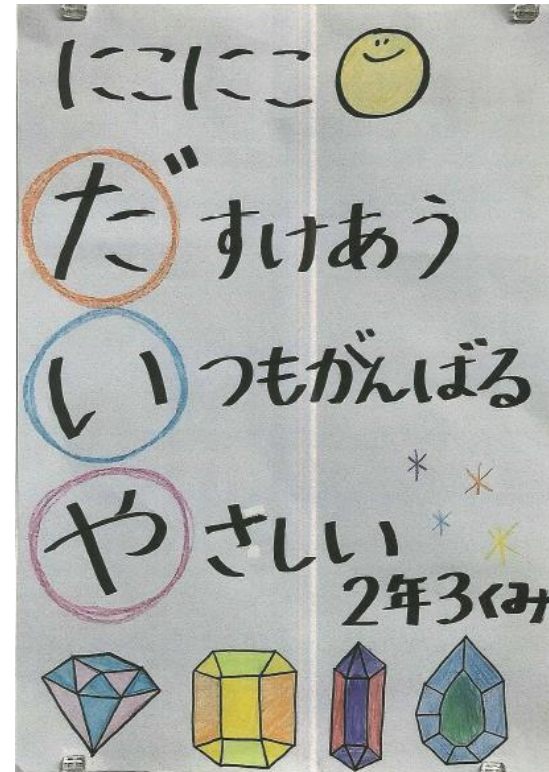 にこにこ
だすけあう
いつもがんばる
やさしい
2年3くみ